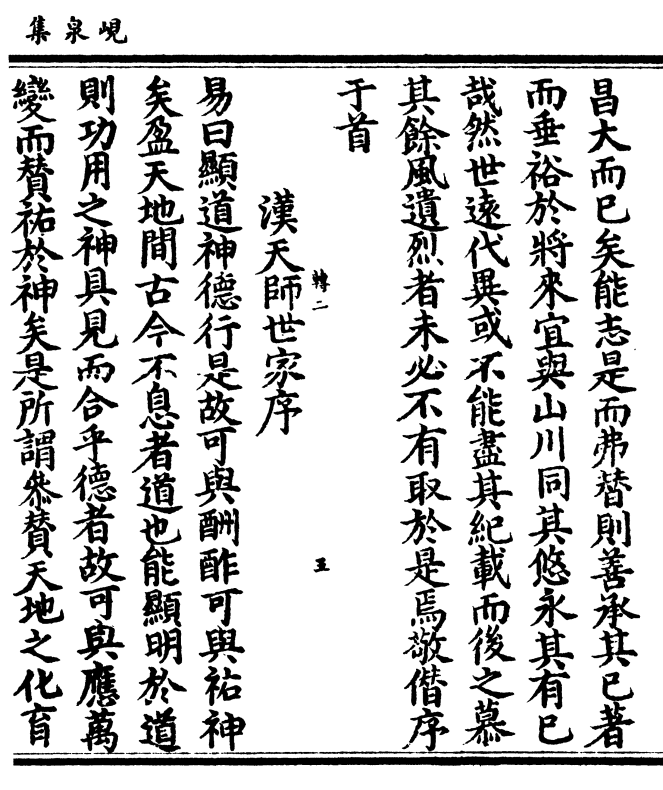 峴泉集
昌大而已矣能志是而弗替則善承其已著
而垂裕於將來宜與山川同其悠永其有已
哉然世遠代異或不能盡其紀載而後之慕
其餘風遺烈者未必不有取於是焉敬僭序
于首
轉二
五
漢天師世家序
易曰顯道神德行是故可與酬酢可與祐神
矣盈天地間古今不息者道也能顯明於道
則功用之神具見而合乎德者故可與應萬
變而贊祐於神矣是所謂叅贊天地之化育